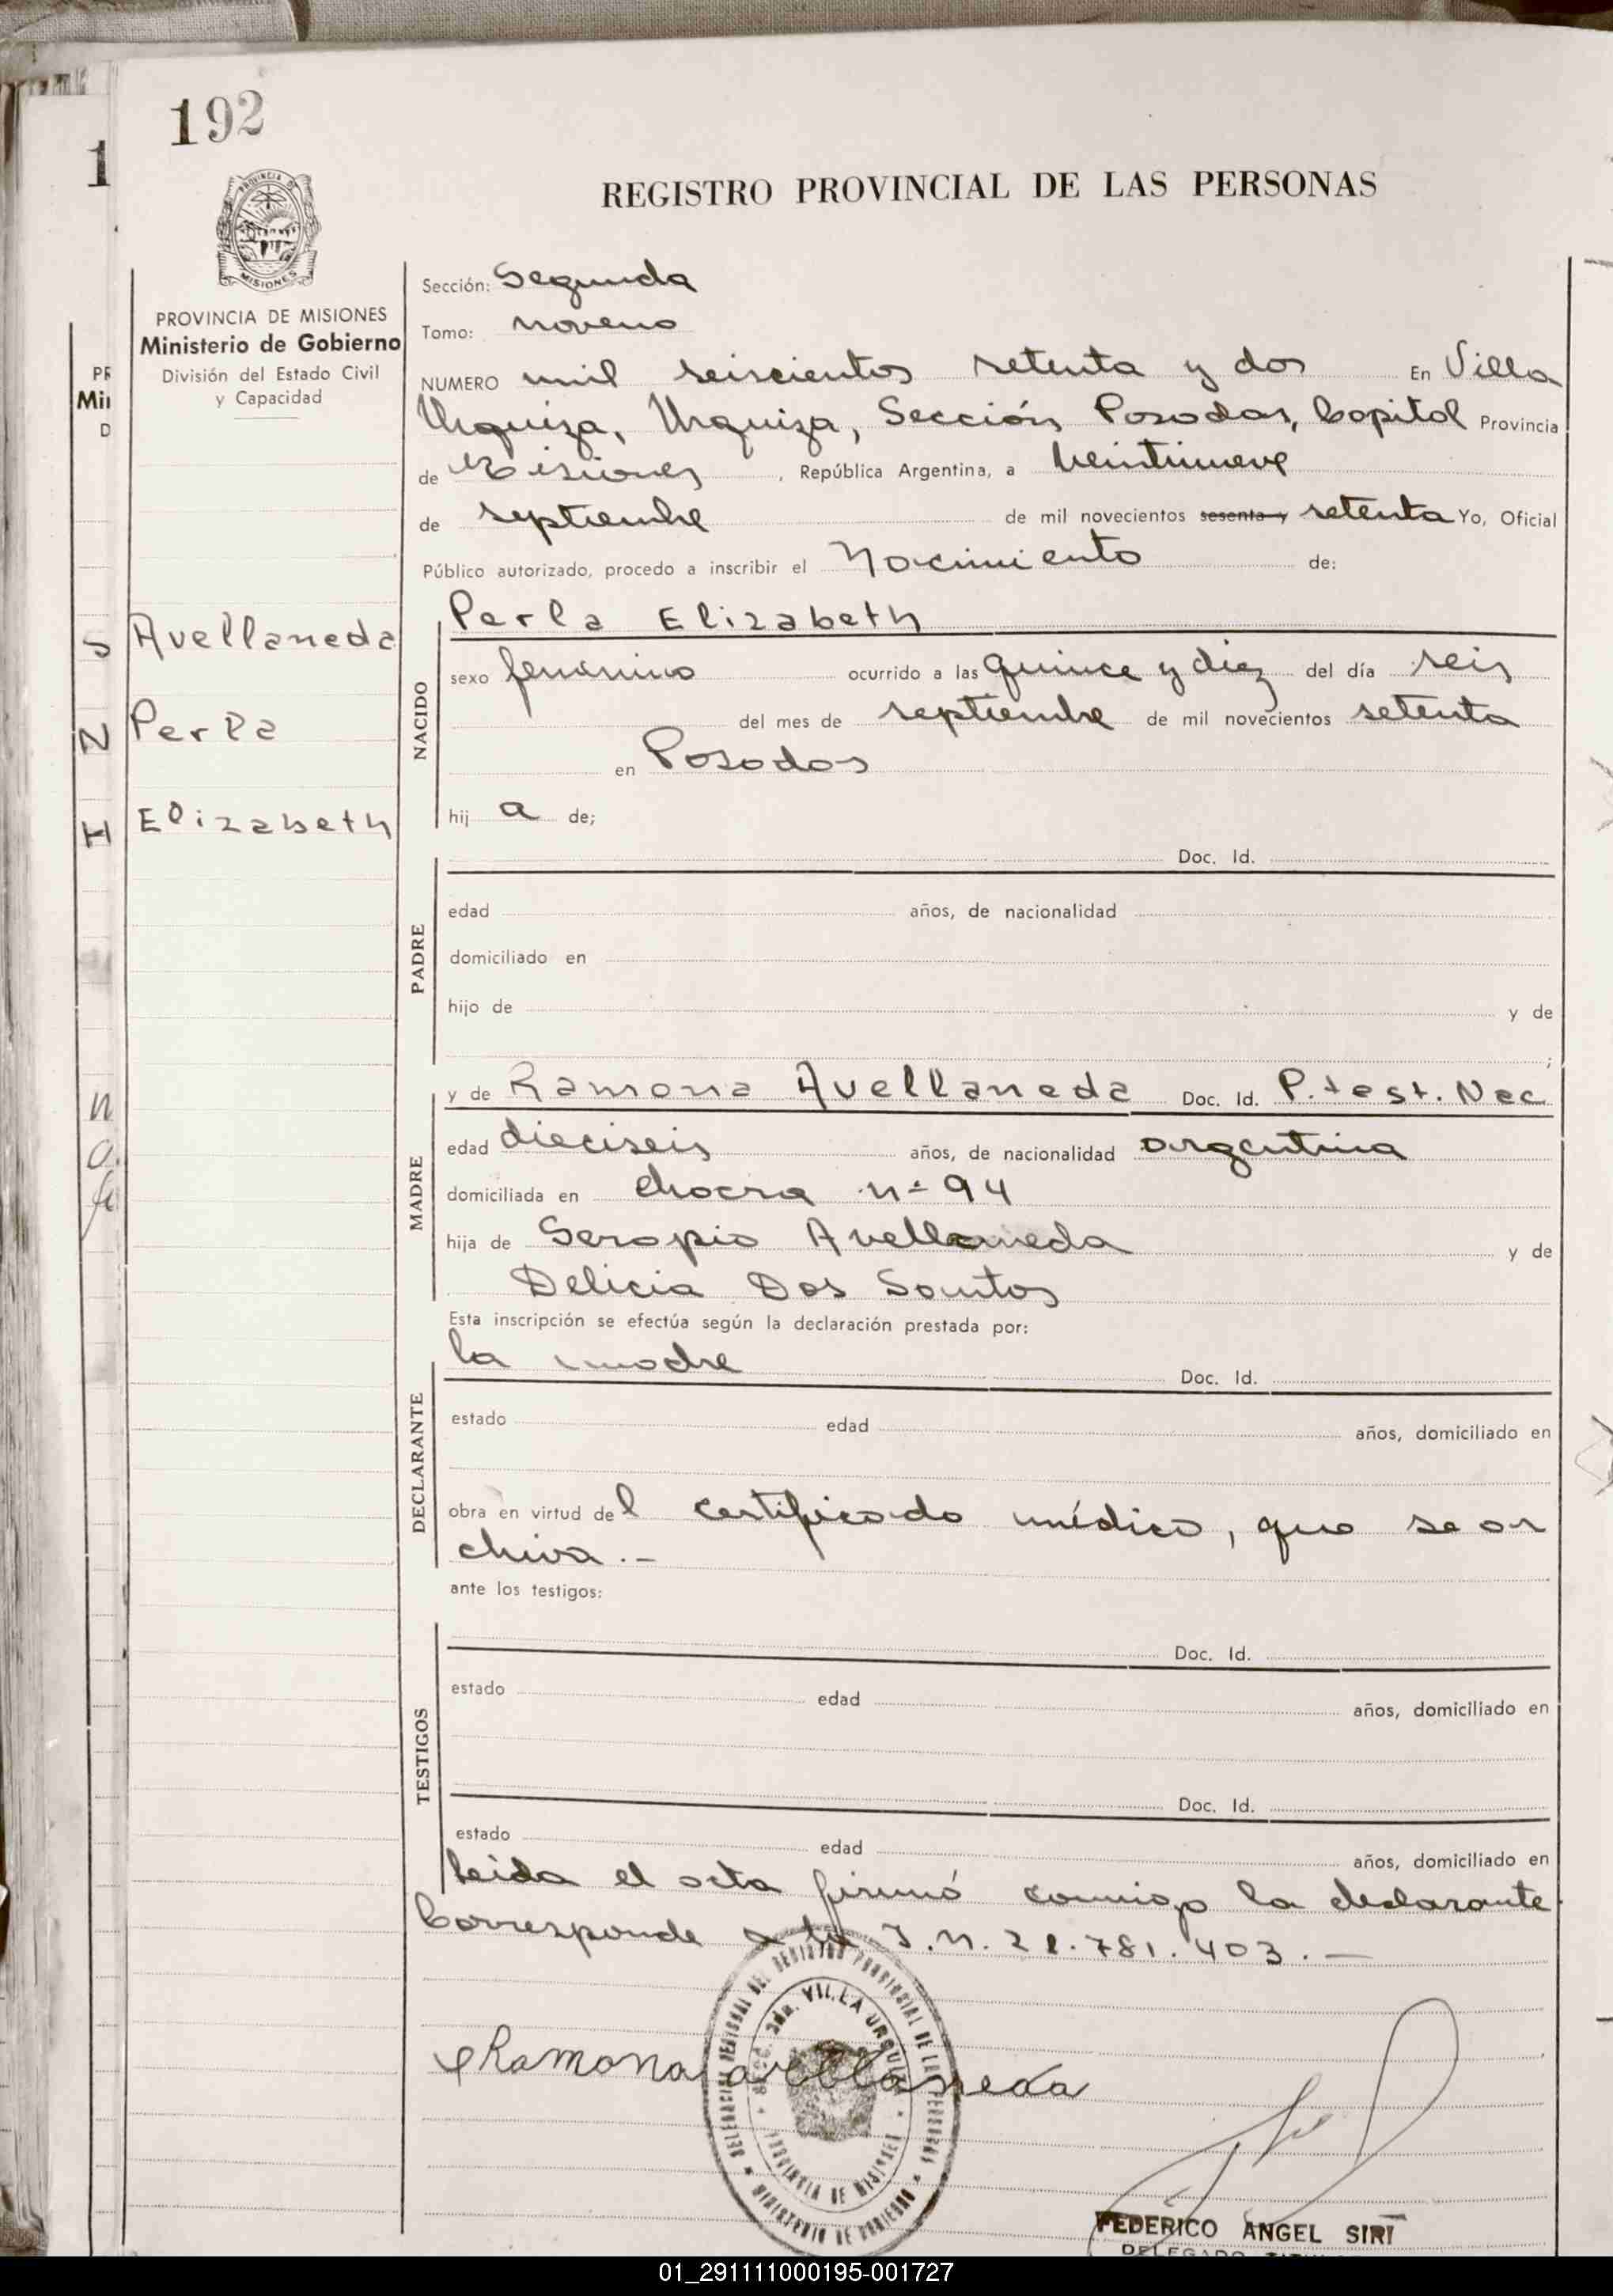 192
1
REGISTRO PROVINCIAL DE LAS PERSONAS
PROVINCIA DE MISIONES
Ministerio de Gobierno
División del Estado Civil
y Capacidad
Avellaneda
Perla
Elizabeth
Sección: Segunda
Tomo: noveno
NUMERO mil seiscientos setenta y dos En Villa
Urquiza, Urquiza, Sección Posadas, Capital Provincia
de Misiones, República Argentina, a veintinueve
de septiembre de mil novecientos sesenta y setenta Yo, Oficial
Público autorizado, procedo a inscribir el Nacimiento de:
NACIDO
Perla Elizabeth
sexo femenino ocurrido a las quince y diez del día seis
del mes de septiembre de mil novecientos setenta
en Posadas
hij a de;
PADRE
Doc. Id.
edad años, de nacionalidad
domiciliado en
hijo de y de
;
MADRE
y de Ramona Avellaneda Doc. Id. P. test. Nac
edad dieciseis años, de nacionalidad argentina
domiciliada en chacra nº 94
hija de Serapio Avellaneda y de
Delicia Dos Santos
Esta inscripción se efectúa según la declaración prestada por:
DECLARANTE
la madre Doc. Id.
estado edad años, domiciliado en
obra en virtud del certificado médico, que se ar
chiva.-
ante los testigos:
TESTIGOS
Doc. Id.
estado edad años, domiciliado en
Doc. Id.
estado edad años, domiciliado en
Leida el acta firmó conmigo la declarante
Corresponde a la I.N. 21.781.403.-
Ramona avellaneda
DELEGACION REGIONAL DEL REGISTRO PROVINCIAL DE LAS PERSONAS
SECC. 2da. VILLA URQUIZA
PROVINCIA DE MISIONES
MINISTERIO DE GOBIERNO
FEDERICO ANGEL SIRI
DELEGADO
01_291111000195-001727